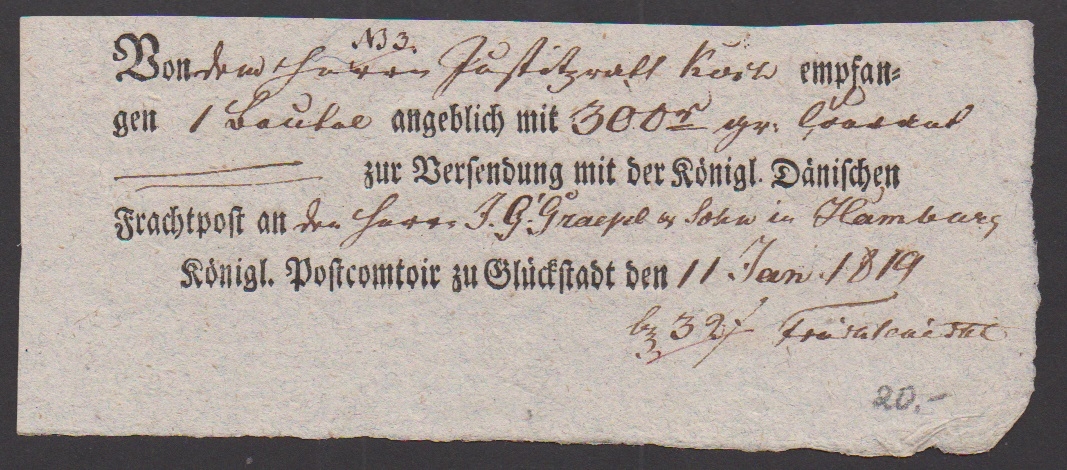 No 3.
Von dem Herrn Justitzrath Koch empfan-
gen 1 Beutel angeblich mit 300 r gr: Courant
zur Versendung mit der Königl. Dänischen
Frachtpost an den Herrn J. G. Graepel u Sohn in Hamburg
Königl. Postcomtoir zu Glückstadt den 11 Jan 1819
bz 32 f
20.-